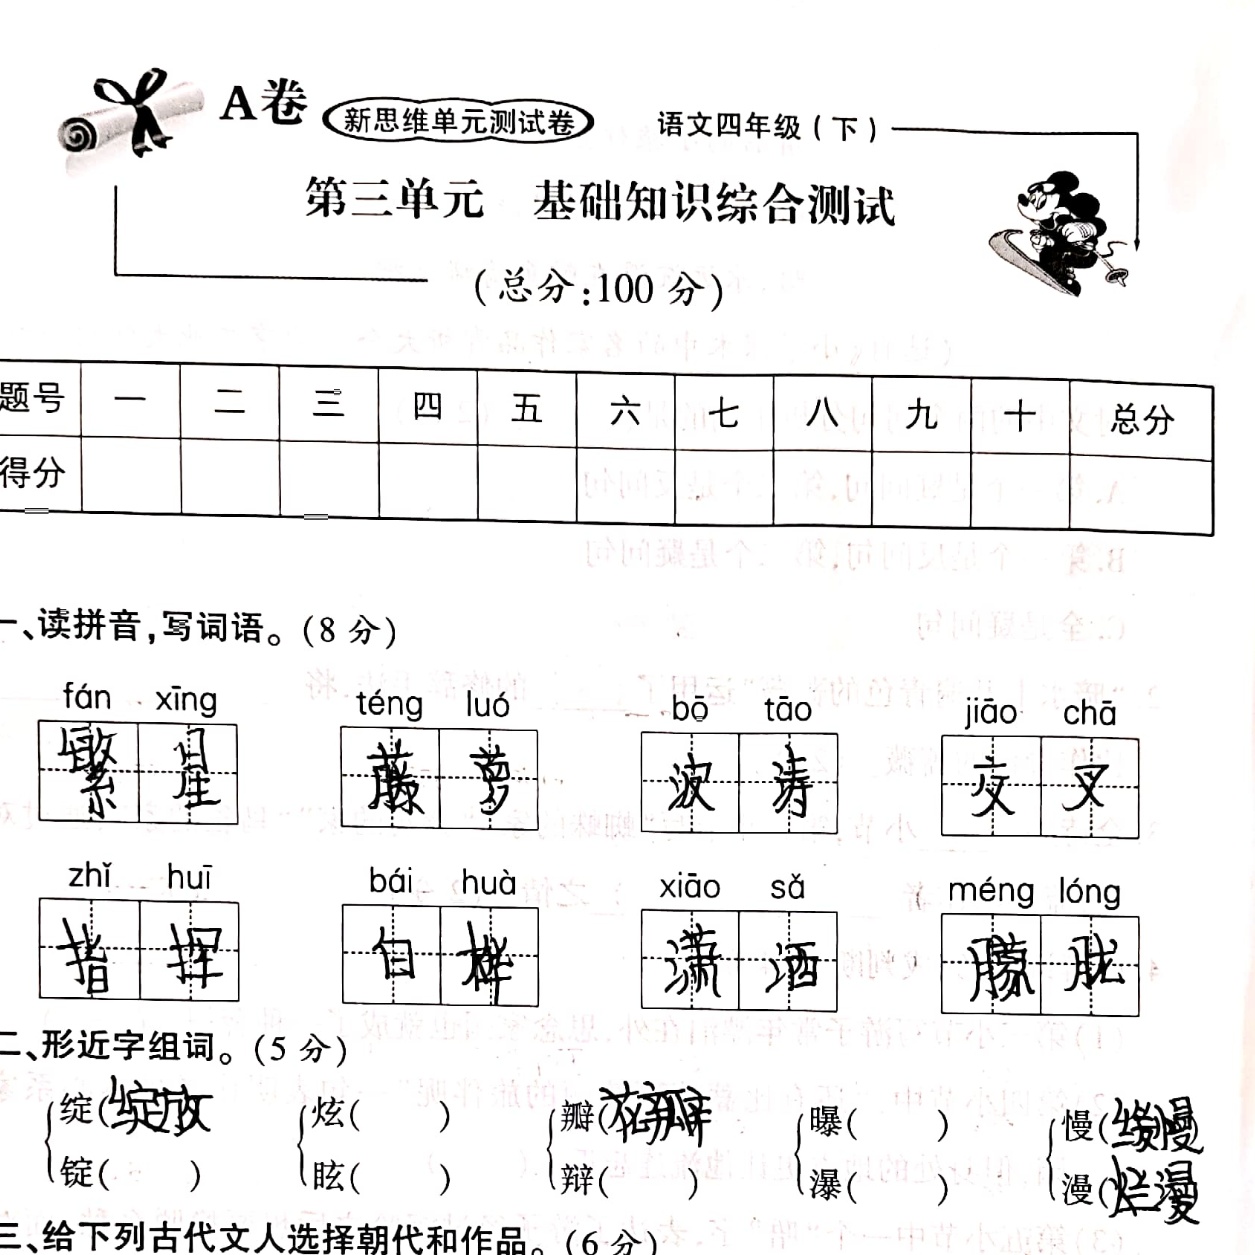 A卷 新思维单元测试卷 语文四年级(下)
第三单元 基础知识综合测试
(总分:100分)
题号 一 二 三 四 五 六 七 八 九 十 总分
得分
一、读拼音,写词语。(8分)
fán xīng téng luó bō tāo jiāo chā
繁星 藤萝 波涛 交叉
zhǐ huī bái huà xiāo sǎ méng lóng
指挥 白桦 潇洒 朦胧
二、形近字组词。(5分)
绽(绽放) 炫( ) 瓣(花瓣) 曝( ) 慢(缓慢)
锭( ) 眩( ) 辩( ) 瀑( ) 漫(烂漫)
三、给下列古代文人选择朝代和作品。(6分)